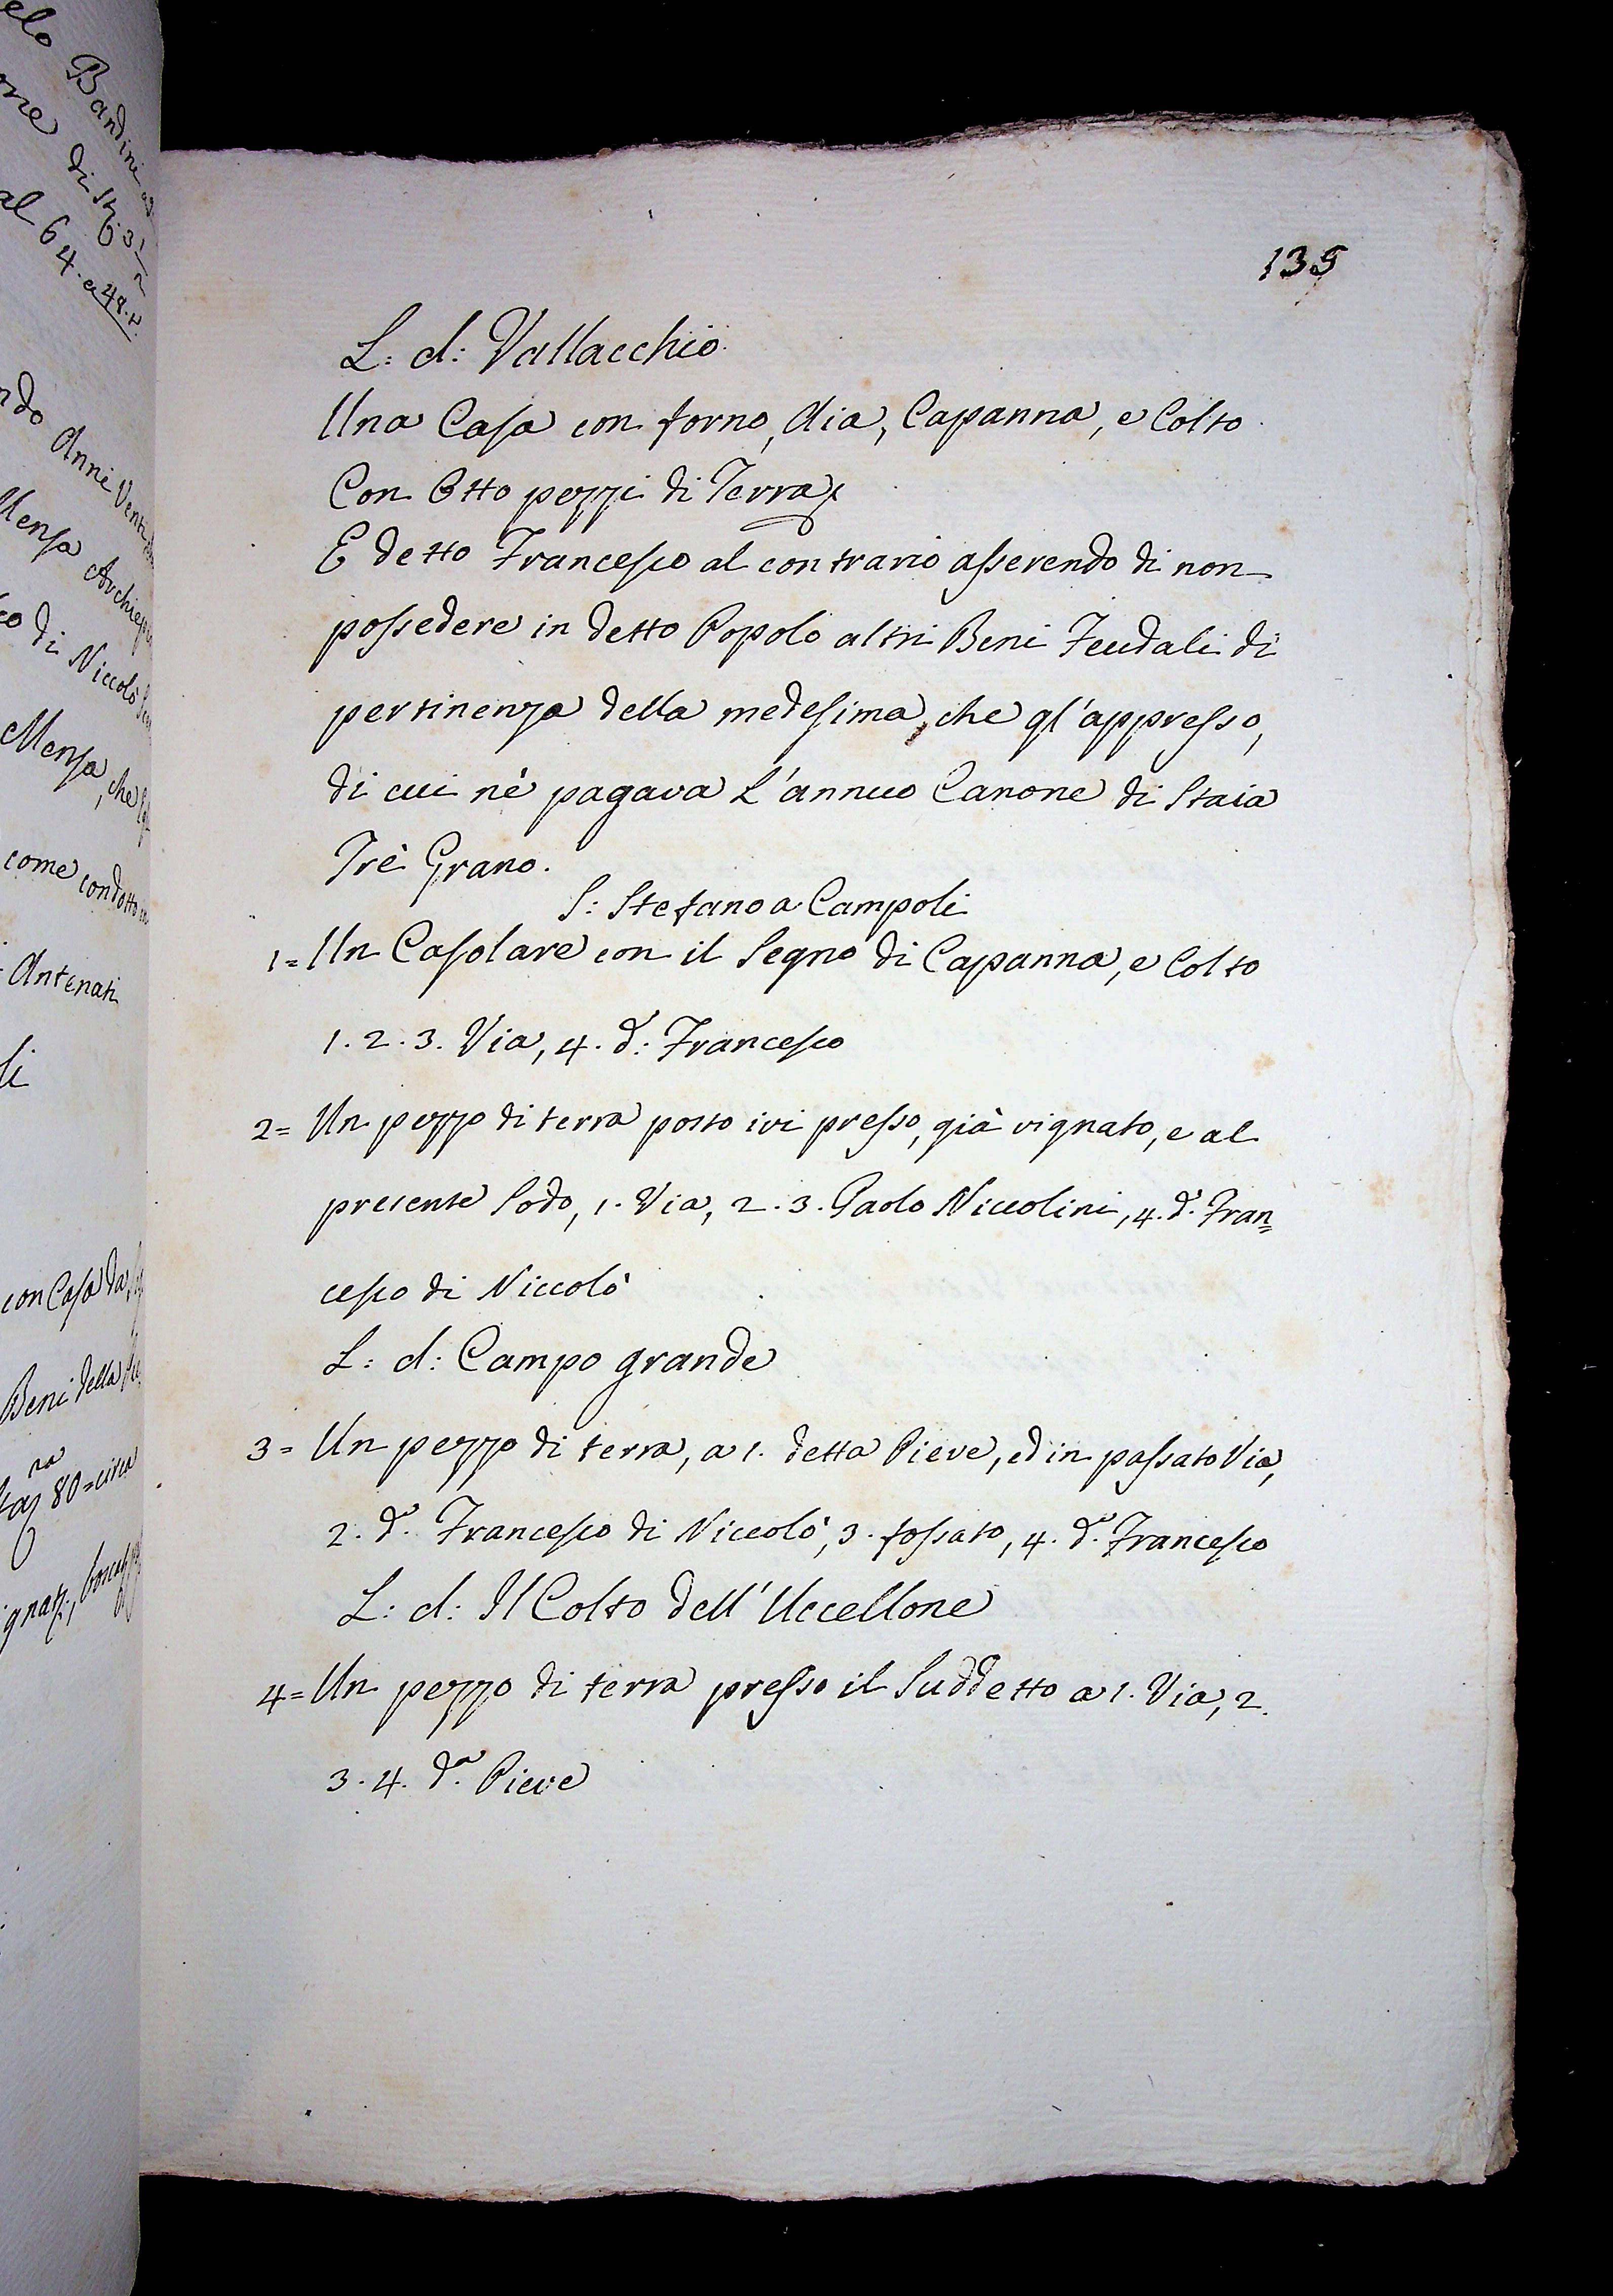 135
L: d: Vallacchio
Una Casa con forno, Aia, Capanna, e Colto
Con Otto pezzi di Terra
E detto Francesco al contrario asserendo di non
possedere in detto Popolo altri Beni Feudali di
pertinenza della medesima, che gl'appresso,
di cui nè pagava L'annuo Canone di Staia
Trè Grano.
S: Stefano a Campoli
1= Un Casolare con il Segno di Capanna, e Colto
1. 2. 3. Via, 4. d.º: Francesco
2= Un pezzo di terra posto ivi presso, già vignato, e al
presente Sodo, 1. Via, 2. 3. Paolo Niccolini, 4. d.º Fran=
cesco di Niccolò
L: d: Campo grande
3= Un pezzo di terra, a 1. detta Pieve, ed in passato Via,
2. d.º Francesco di Niccolò, 3. fossato, 4. d.º Francesco
L: d: Il Colto dell'Uccellone
4= Un pezzo di terra presso il Suddetto a 1. Via, 2.
3. 4. d.ª Pieve
elo Bandini
one di
al 64. a 48.
ndo Anni
Mensa
co di Niccolò
Mensa, che
come condotto
Antenati
li
con Casa da
Beni della
80= circa